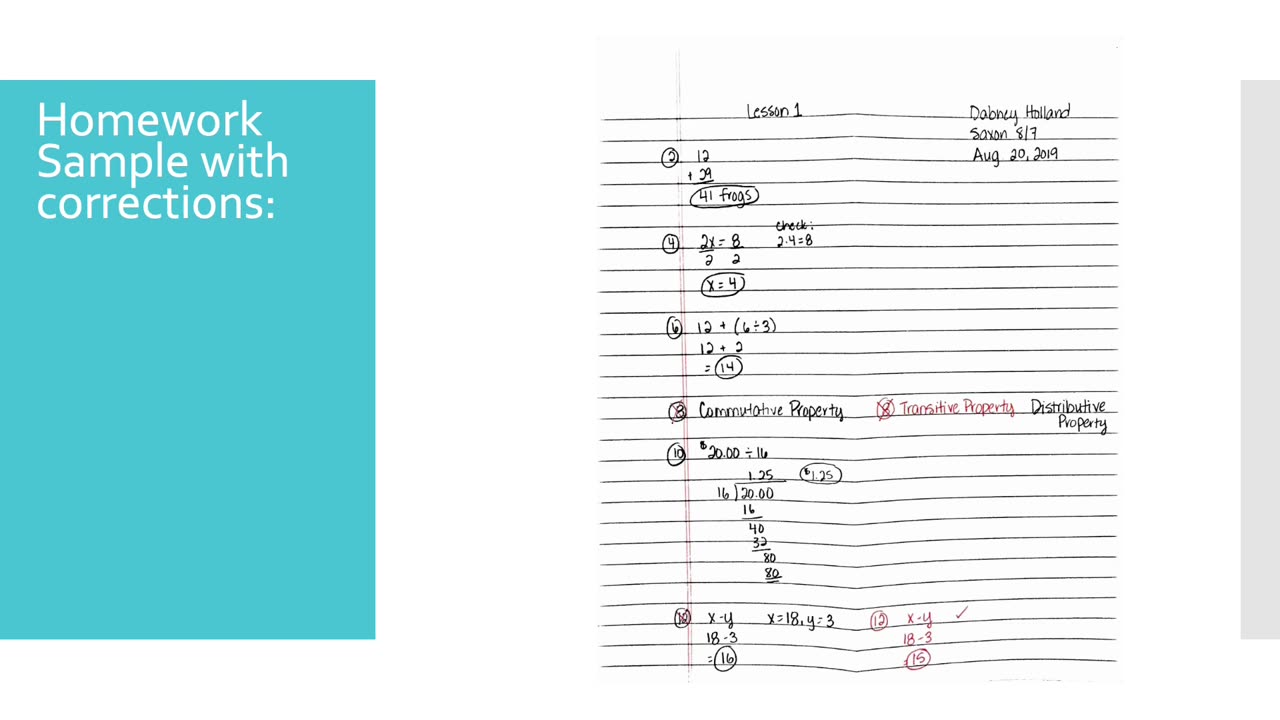 Homework
Sample with
corrections:
Lesson 1
Dabney Holland
Saxon 8/7
Aug 20, 2019
2 12
+ 29
41 frogs
4 2x = 8
2 2
x = 4
check:
2·4=8
6 12 + (6÷3)
12 + 2
= 14
8 Commutative Property
8 Transitive Property Distributive
Property
10 $20.00 ÷ 16
1.25 $1.25
16 20.00
16
40
32
80
80
12 x-y x=18, y=3
18-3
=16
12 x-y ✓
18-3
=15